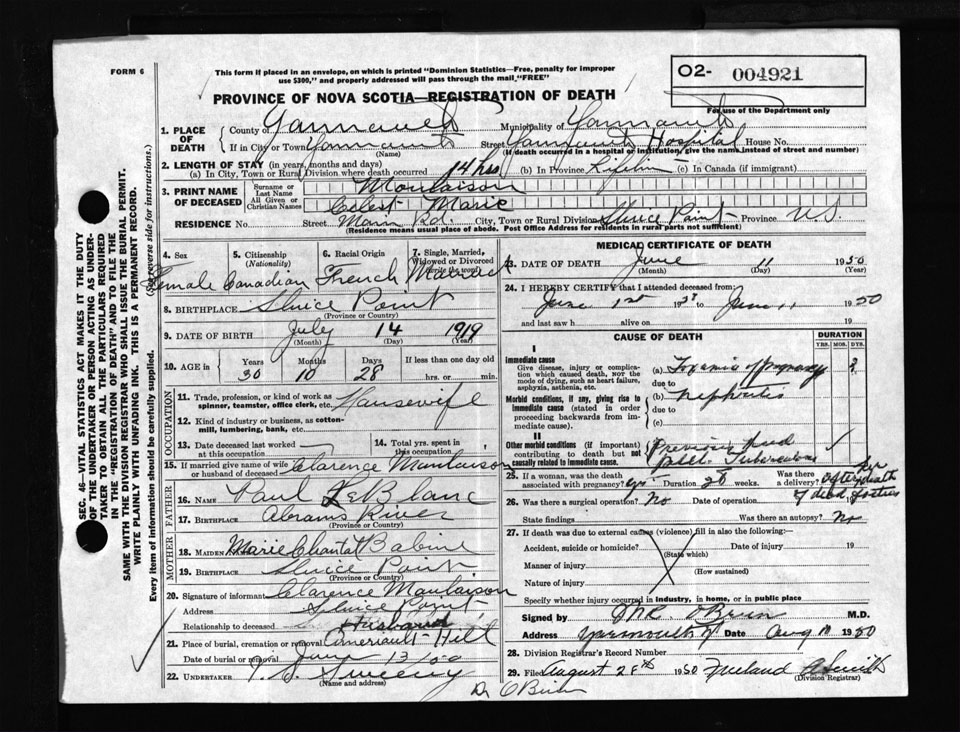 FORM 6
This form if placed in an envelope, on which is printed "Dominion Statistics—Free, penalty for improper
use $300," and properly addressed will pass through the mail, "FREE"
O2- 004921
For use of the Department only
PROVINCE OF NOVA SCOTIA—REGISTRATION OF DEATH
1. PLACE OF DEATH
County of Yarmouth Municipality of Yarmouth
If in City or Town Yarmouth (Name) Street Yarmouth Hospital House No.
(If death occurred in a hospital or institution, give the name instead of street and number)
2. LENGTH OF STAY (in years, months and days)
(a) In City, Town or Rural Division where death occurred 14 hrs (b) In Province Lifetime (c) In Canada (if immigrant)
3. PRINT NAME OF DECEASED
Surname or Last Name Moulaison
All Given or Christian Names Celest Marie
RESIDENCE No. Street Main Rd. City, Town or Rural Division Sluice Point Province N.S.
(Residence means usual place of abode. Post Office Address for residents in rural parts not sufficient)
4. Sex Female
5. Citizenship (Nationality) Canadian
6. Racial Origin French
7. Single, Married, Widowed or Divorced (write the word) Married
8. BIRTHPLACE Sluice Point
(Province or Country)
9. DATE OF BIRTH July 14 1919
(Month) (Day) (Year)
10. AGE in Years 30 Months 10 Days 28 If less than one day old hrs. or min.
OCCUPATION
11. Trade, profession, or kind of work as spinner, teamster, office clerk, etc. Housewife
12. Kind of industry or business, as cotton-mill, lumbering, bank, etc.
13. Date deceased last worked at this occupation
14. Total yrs. spent in this occupation
15. If married give name of wife or husband of deceased Clarence Moulaison
FATHER
16. Name Paul LeBlanc
17. Birthplace Abrams River
(Province or Country)
MOTHER
18. Maiden Marie Chantal Babine
19. Birthplace Sluice Point
(Province or Country)
20. Signature of informant Clarence Moulaison
Address Sluice Point
Relationship to deceased Husband
21. Place of burial, cremation or removal Ameriault Hill
Date of burial or removal June 13/50
22. UNDERTAKER Sweeny
(Name and address)
Dr O'Brien
MEDICAL CERTIFICATE OF DEATH
23. DATE OF DEATH June 11 1950
(Month) (Day) (Year)
24. I HEREBY CERTIFY that I attended deceased from:
June 1st 19 to June 11 1950
and last saw h alive on 19
CAUSE OF DEATH
DURATION
YRS. MOS. DYS.
I
Immediate cause
Give disease, injury or complication which caused death, not the mode of dying, such as heart failure, asphyxia, asthenia, etc.
(a) Toxemia of pregnancy ?
due to
Morbid conditions, if any, giving rise to immediate cause (stated in order proceeding backwards from immediate cause).
(b) Nephritis
due to
(c)
II
Other morbid conditions (if important) contributing to death but not causally related to immediate cause.
Tuberculosis
25. If a woman, was the death associated with pregnancy? yes Duration 28 weeks. Was there a delivery? after death
26. Was there a surgical operation? No Date of operation 19
State findings Was there an autopsy? No
27. If death was due to external causes (violence) fill in also the following:
Accident, suicide or homicide? Date of injury 19
(State which)
Manner of injury
(How sustained)
Nature of injury
Specify whether injury occurred in industry, in home, or in public place
Signed by O'Brien M.D.
Address Yarmouth N Date Aug 1950
28. Division Registrar's Record Number
29. Filed August 28th 1950
(Division Registrar)
SEC. 46—VITAL STATISTICS ACT MAKES IT THE DUTY
OF THE UNDERTAKER OR PERSON ACTING AS UNDER-
TAKER TO OBTAIN ALL THE PARTICULARS REQUIRED
IN THE "REGISTRATION OF DEATH" AND TO FILE THE
SAME WITH THE DIVISION REGISTRAR WHO SHALL ISSUE THE BURIAL PERMIT.
WRITE PLAINLY WITH UNFADING INK. THIS IS A PERMANENT RECORD.
Every item of information should be carefully supplied. (See reverse side for instructions).